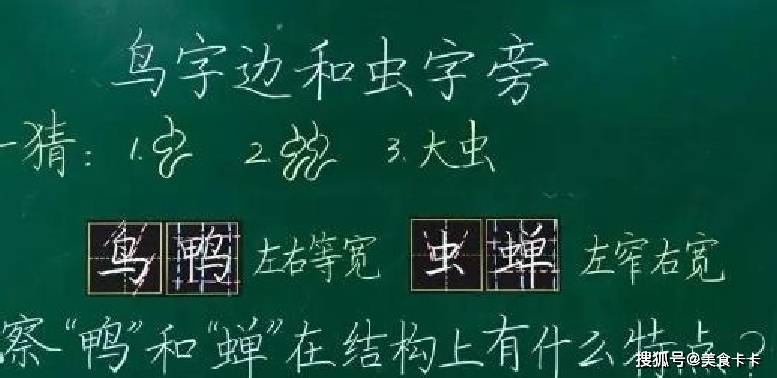 鸟字边和虫字旁
一猜：1. 2. 3.大虫
鸟 鸭 左右等宽 虫 蝉 左窄右宽
察“鸭”和“蝉”在结构上有什么特点？
搜狐号@美食卡卡